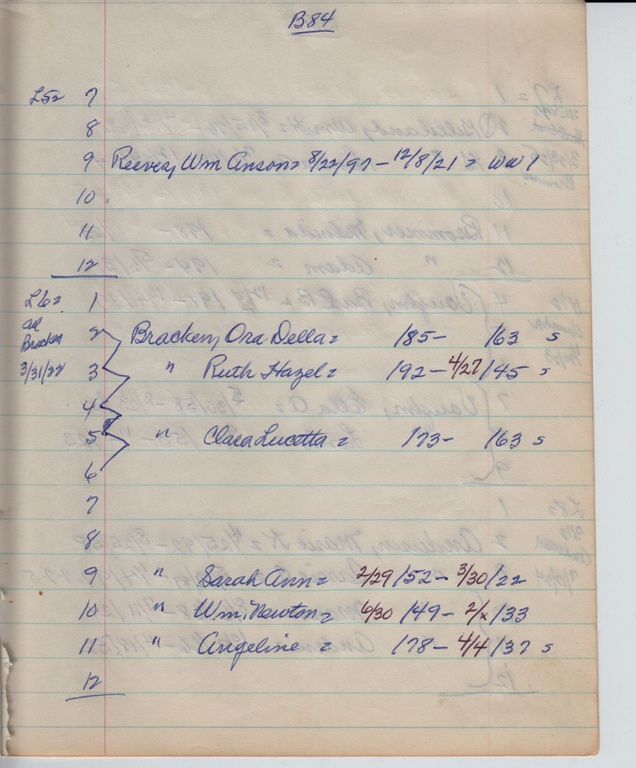 B84
L52 7
8
9 Reeves, Wm Anson = 8/22/97 - 12/8/21 = WW 1
10
11
12
L62 1
all
Bracken
3/31/22
2 Bracken, Ora Della = /85 - /63 s
3 " Ruth Hazel = /92 - 4/27/45 s
4
5 " Clara Lucetta = /73 - /63 s
6
7
8
9 " Sarah Ann = 2/29/52 - 3/30/22
10 " Wm. Newton = 6/30/49 - 2/x/33
11 " Angeline = /78 - 4/4/37 s
12